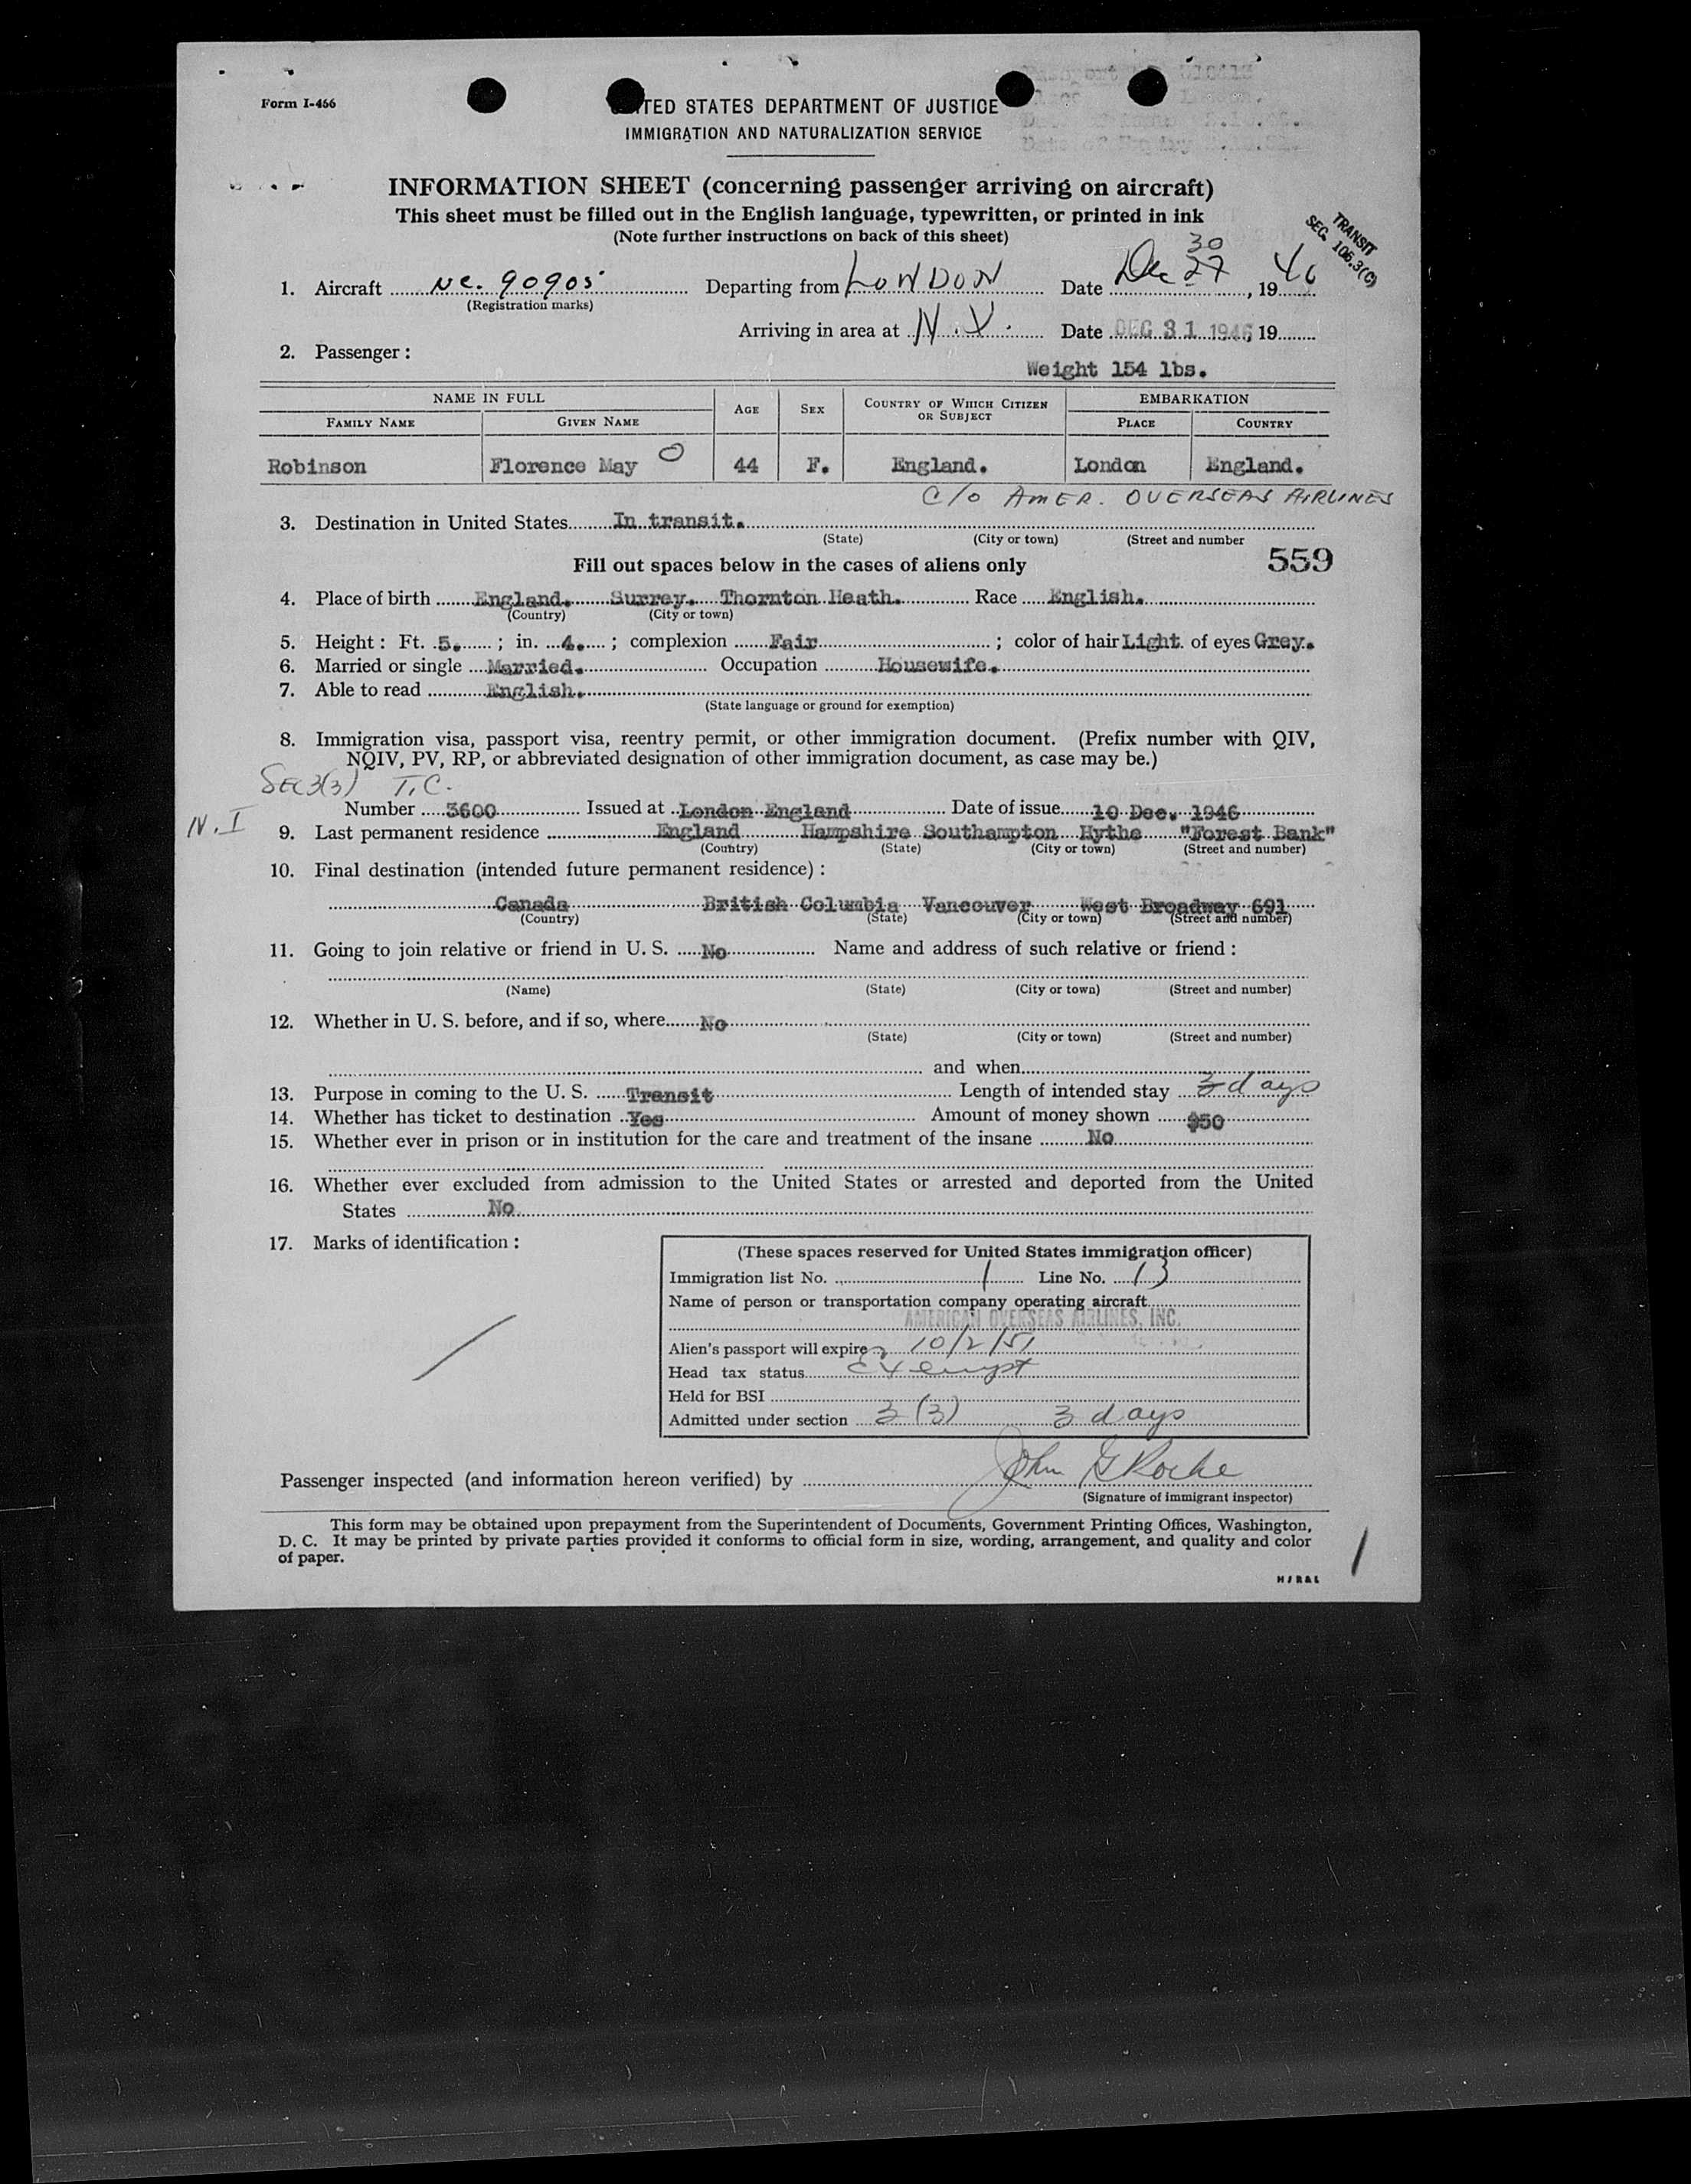 Form I-466
UNITED STATES DEPARTMENT OF JUSTICE
IMMIGRATION AND NATURALIZATION SERVICE
INFORMATION SHEET (concerning passenger arriving on aircraft)
This sheet must be filled out in the English language, typewritten, or printed in ink
(Note further instructions on back of this sheet)
TRANSIT
SEC. 106.3(C)
30
1. Aircraft NC. 90905 Departing from LONDON Date Dec 27, 1946
(Registration marks)
Arriving in area at N.Y. Date DEC 31 1946, 19
2. Passenger :
Weight 154 lbs.
NAME IN FULL AGE SEX COUNTRY OF WHICH CITIZEN OR SUBJECT EMBARKATION
FAMILY NAME GIVEN NAME PLACE COUNTRY
Robinson Florence May O 44 F. England. London England.
C/O AMER. OVERSEAS AIRLINES
3. Destination in United States In transit.
(State) (City or town) (Street and number
Fill out spaces below in the cases of aliens only 559
4. Place of birth England. Surrey. Thornton Heath. Race English.
(Country) (City or town)
5. Height : Ft. 5. ; in. 4. ; complexion Fair ; color of hair Light. of eyes Grey.
6. Married or single Married. Occupation Housewife.
7. Able to read English.
(State language or ground for exemption)
8. Immigration visa, passport visa, reentry permit, or other immigration document. (Prefix number with QIV,
NQIV, PV, RP, or abbreviated designation of other immigration document, as case may be.)
SEC 3(3) T.C.
Number 3600 Issued at London England Date of issue 10 Dec. 1946
N.I
9. Last permanent residence England Hampshire Southampton Hythe "Forest Bank"
(Country) (State) (City or town) (Street and number)
10. Final destination (intended future permanent residence) :
Canada British Columbia Vancouver West Broadway 691
(Country) (State) (City or town) (Street and number)
11. Going to join relative or friend in U. S. No Name and address of such relative or friend :
(Name) (State) (City or town) (Street and number)
12. Whether in U. S. before, and if so, where No
(State) (City or town) (Street and number)
and when
13. Purpose in coming to the U. S. Transit Length of intended stay 3 days
14. Whether has ticket to destination Yes Amount of money shown $50
15. Whether ever in prison or in institution for the care and treatment of the insane No
16. Whether ever excluded from admission to the United States or arrested and deported from the United
States No
17. Marks of identification :
(These spaces reserved for United States immigration officer)
Immigration list No. 1 Line No. 13
Name of person or transportation company operating aircraft
AMERICAN OVERSEAS AIRLINES, INC.
Alien's passport will expire 10/2/51
Head tax status exempt
Held for BSI
Admitted under section 3(3) 3 days
Passenger inspected (and information hereon verified) by John G Roche
(Signature of immigrant inspector)
This form may be obtained upon prepayment from the Superintendent of Documents, Government Printing Offices, Washington,
D. C. It may be printed by private parties provided it conforms to official form in size, wording, arrangement, and quality and color
of paper.